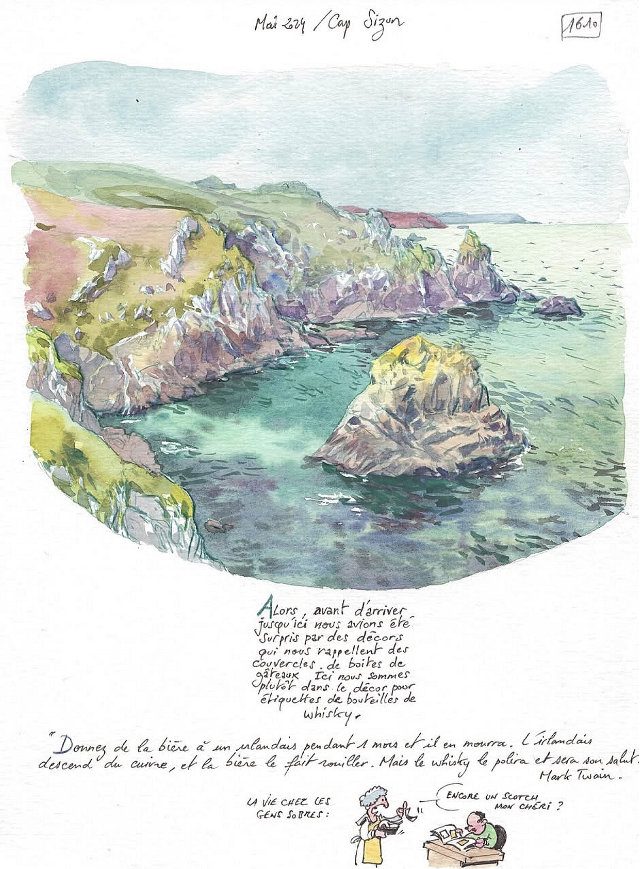 Mai 2024 / Cap Sizun
1610
Alors, avant d'arriver
jusqu'ici nous avions été
surpris par des décors
qui nous rappellent des
couvercles de boites de
gâteaux Ici nous sommes
plutôt dans le décor pour
étiquettes de bouteilles de
whisky.
"Donnez de la bière à un irlandais pendant 1 mois et il en mourra. L'irlandais
descend du cuivre, et la bière le fait rouiller. Mais le whisky le polira et sera son salut.
Mark Twain.
LA VIE CHEZ LES
GENS SOBRES:
ENCORE UN SCOTCH
MON CHÉRI ?